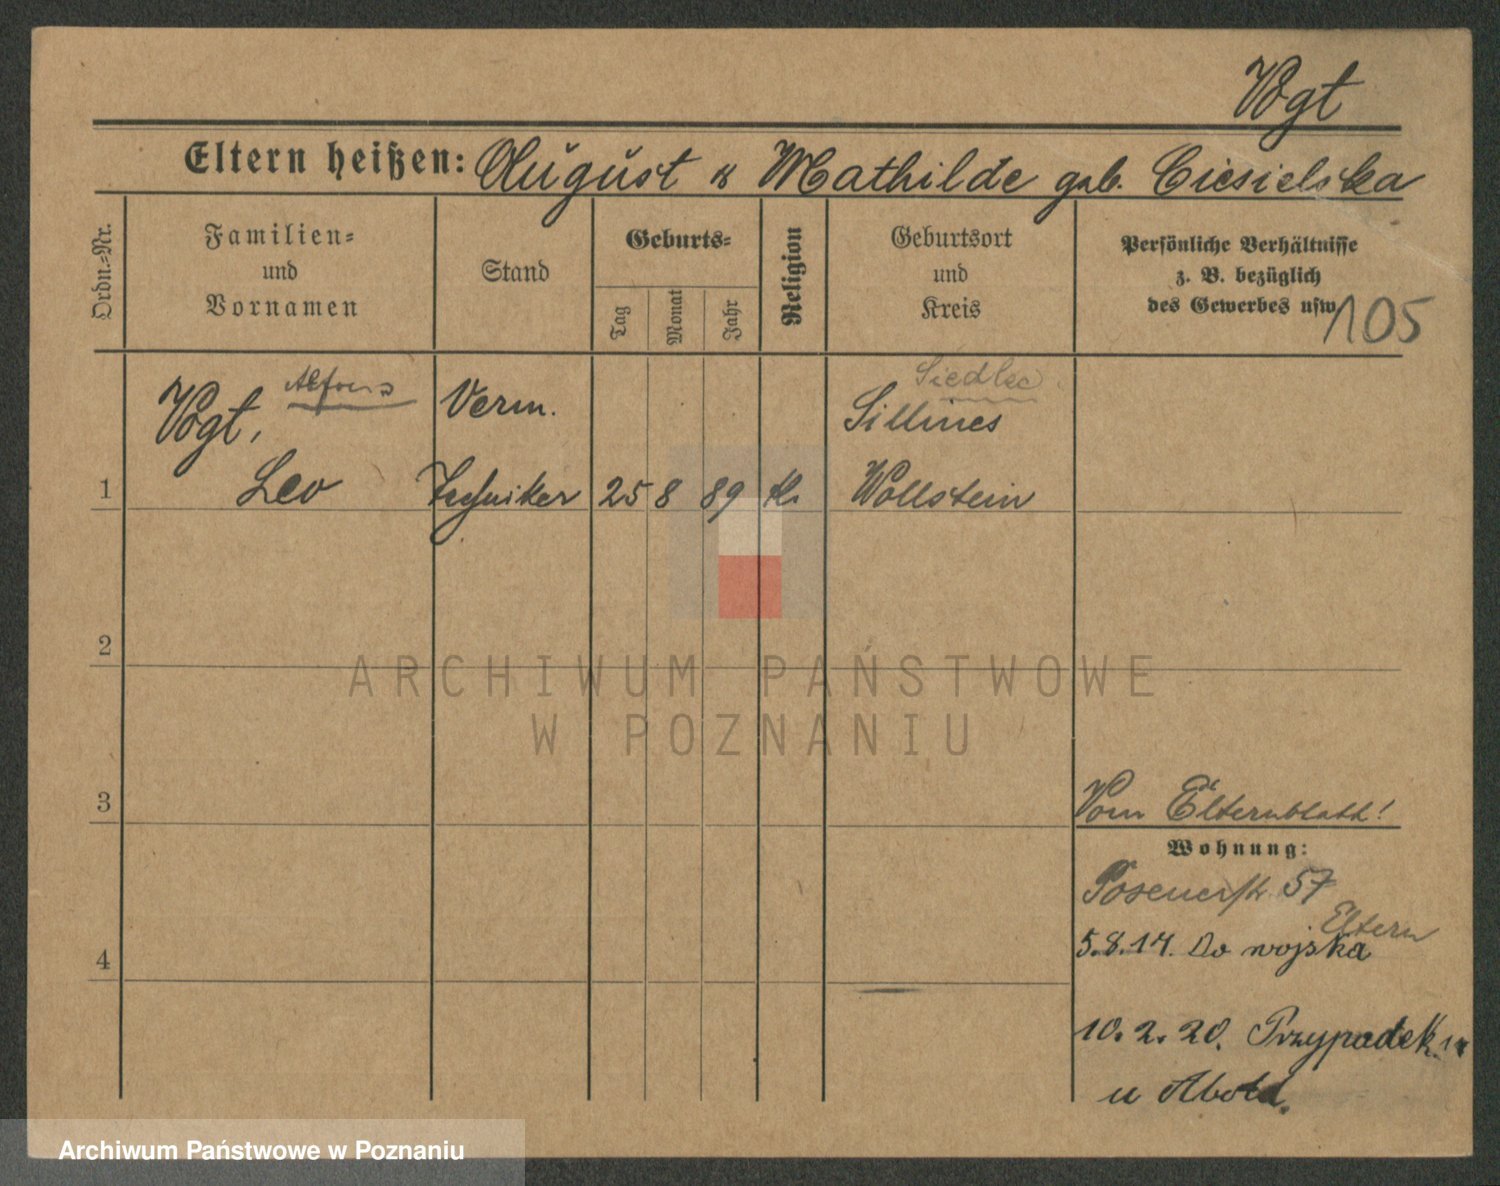 Vogt
Eltern heißen: August & Mathilde geb. Ciesielska
Ordn.-Nr.
Familien-
und
Vornamen
Stand
Geburts-
Tag
Monat
Jahr
Religion
Geburtsort
und
Kreis
Persönliche Verhältnisse
z. B. bezüglich
des Gewerbes usw.
105
Alfons
Siedlec
Vogt,
Verm.
1
Leo
Techniker
25
8
89
k.
Wollstein
2
ARCHIWUM PAŃSTWOWE
W POZNANIU
3
Vom Elternblatt!
Wohnung:
Posenerstr. 57
Eltern
5.8.14. Do wojska
4
10. 2. 20. Przypadek
u
Archiwum Państwowe w Poznaniu